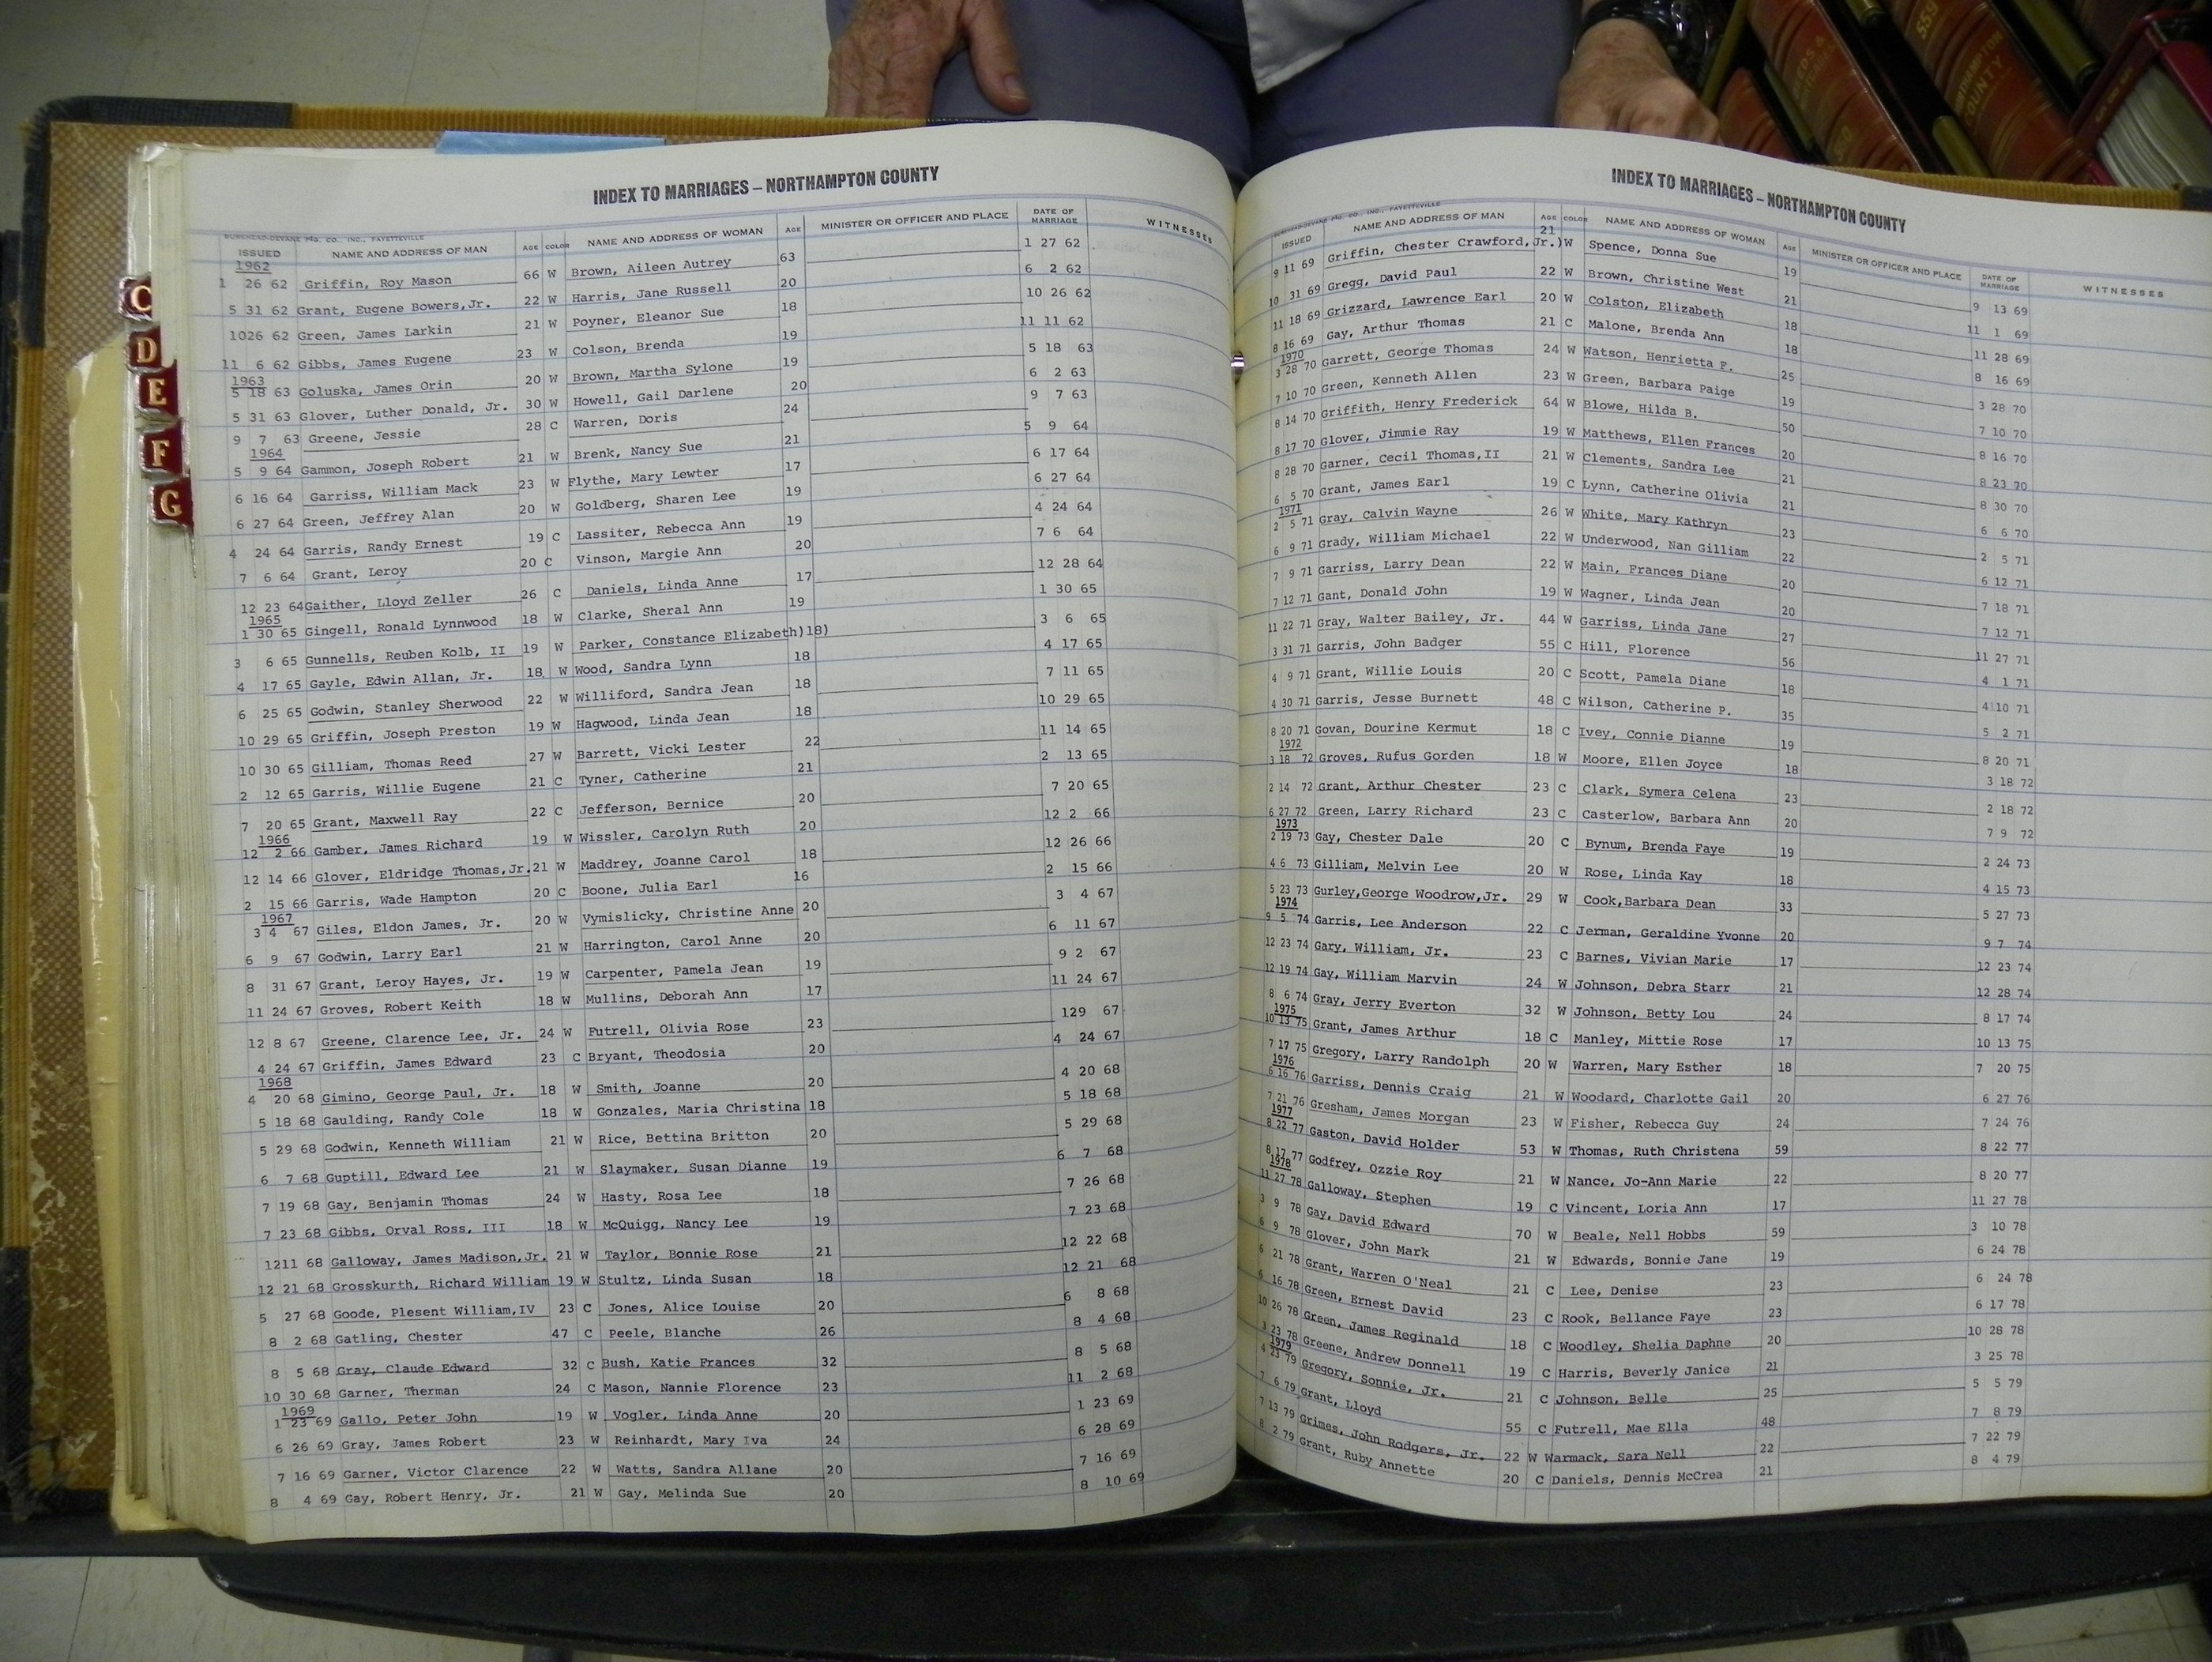 INDEX TO MARRIAGES – NORTHAMPTON COUNTY
BURKHEAD-DEVANE PTG. CO., INC., FAYETTEVILLE
ISSUED NAME AND ADDRESS OF MAN AGE COLOR NAME AND ADDRESS OF WOMAN AGE MINISTER OR OFFICER AND PLACE DATE OF MARRIAGE WITNESSES
1962
1 26 62 Griffin, Roy Mason 66 W Brown, Aileen Autrey 63 1 27 62
5 31 62 Grant, Eugene Bowers,Jr. 22 W Harris, Jane Russell 20 6 2 62
1026 62 Green, James Larkin 21 W Poyner, Eleanor Sue 18 10 26 62
11 6 62 Gibbs, James Eugene 23 W Colson, Brenda 19 11 11 62
1963
5 18 63 Goluska, James Orin 20 W Brown, Martha Sylone 19 5 18 63
5 31 63 Glover, Luther Donald, Jr. 30 W Howell, Gail Darlene 20 6 2 63
9 7 63 Greene, Jessie 28 C Warren, Doris 24 9 7 63
1964
5 9 64 Gammon, Joseph Robert 21 W Brenk, Nancy Sue 21 5 9 64
6 16 64 Garriss, William Mack 23 W Flythe, Mary Lewter 17 6 17 64
6 27 64 Green, Jeffrey Alan 20 W Goldberg, Sharen Lee 19 6 27 64
4 24 64 Garris, Randy Ernest 19 C Lassiter, Rebecca Ann 19 4 24 64
7 6 64 Grant, Leroy 20 C Vinson, Margie Ann 20 7 6 64
12 23 64 Gaither, Lloyd Zeller 26 C Daniels, Linda Anne 17 12 28 64
1965
1 30 65 Gingell, Ronald Lynnwood 18 W Clarke, Sheral Ann 19 1 30 65
3 6 65 Gunnells, Reuben Kolb, II 19 W Parker, Constance Elizabeth)18) 3 6 65
4 17 65 Gayle, Edwin Allan, Jr. 18 W Wood, Sandra Lynn 18 4 17 65
6 25 65 Godwin, Stanley Sherwood 22 W Williford, Sandra Jean 18 7 11 65
10 29 65 Griffin, Joseph Preston 19 W Hagwood, Linda Jean 18 10 29 65
10 30 65 Gilliam, Thomas Reed 27 W Barrett, Vicki Lester 22 11 14 65
2 12 65 Garris, Willie Eugene 21 C Tyner, Catherine 21 2 13 65
7 20 65 Grant, Maxwell Ray 22 C Jefferson, Bernice 20 7 20 65
1966
12 2 66 Gamber, James Richard 19 W Wissler, Carolyn Ruth 20 12 2 66
12 14 66 Glover, Eldridge Thomas,Jr. 21 W Maddrey, Joanne Carol 18 12 26 66
2 15 66 Garris, Wade Hampton 20 C Boone, Julia Earl 16 2 15 66
1967
3 4 67 Giles, Eldon James, Jr. 20 W Vymislicky, Christine Anne 20 3 4 67
6 9 67 Godwin, Larry Earl 21 W Harrington, Carol Anne 20 6 11 67
8 31 67 Grant, Leroy Hayes, Jr. 19 W Carpenter, Pamela Jean 19 9 2 67
11 24 67 Groves, Robert Keith 18 W Mullins, Deborah Ann 17 11 24 67
12 8 67 Greene, Clarence Lee, Jr. 24 W Futrell, Olivia Rose 23 129 67
4 24 67 Griffin, James Edward 23 C Bryant, Theodosia 20 4 24 67
1968
4 20 68 Gimino, George Paul, Jr. 18 W Smith, Joanne 20 4 20 68
5 18 68 Gaulding, Randy Cole 18 W Gonzales, Maria Christina 18 5 18 68
5 29 68 Godwin, Kenneth William 21 W Rice, Bettina Britton 20 5 29 68
6 7 68 Guptill, Edward Lee 21 W Slaymaker, Susan Dianne 19 6 7 68
7 19 68 Gay, Benjamin Thomas 24 W Hasty, Rosa Lee 18 7 26 68
7 23 68 Gibbs, Orval Ross, III 18 W McQuigg, Nancy Lee 19 7 23 68
1211 68 Galloway, James Madison,Jr. 21 W Taylor, Bonnie Rose 21 12 22 68
12 21 68 Grosskurth, Richard William 19 W Stultz, Linda Susan 18 12 21 68
5 27 68 Goode, Plesent William,IV 23 C Jones, Alice Louise 20 6 8 68
8 2 68 Gatling, Chester 47 C Peele, Blanche 26 8 4 68
8 5 68 Gray, Claude Edward 32 C Bush, Katie Frances 32 8 5 68
10 30 68 Garner, Therman 24 C Mason, Nannie Florence 23 11 2 68
1969
1 23 69 Gallo, Peter John 19 W Vogler, Linda Anne 20 1 23 69
6 26 69 Gray, James Robert 23 W Reinhardt, Mary Iva 24 6 28 69
7 16 69 Garner, Victor Clarence 22 W Watts, Sandra Allane 20 7 16 69
8 4 69 Gay, Robert Henry, Jr. 21 W Gay, Melinda Sue 20 8 10 69
INDEX TO MARRIAGES – NORTHAMPTON COUNTY
BURKHEAD-DEVANE PTG. CO., INC., FAYETTEVILLE
ISSUED NAME AND ADDRESS OF MAN AGE COLOR NAME AND ADDRESS OF WOMAN AGE MINISTER OR OFFICER AND PLACE DATE OF MARRIAGE WITNESSES
9 11 69 Griffin, Chester Crawford,Jr.) 21 W Spence, Donna Sue 19 9 13 69
10 31 69 Gregg, David Paul 22 W Brown, Christine West 21 11 1 69
11 18 69 Grizzard, Lawrence Earl 20 W Colston, Elizabeth 18 11 28 69
8 16 69 Gay, Arthur Thomas 21 C Malone, Brenda Ann 18 8 16 69
1970
3 28 70 Garrett, George Thomas 24 W Watson, Henrietta F. 25 3 28 70
7 10 70 Green, Kenneth Allen 23 W Green, Barbara Paige 19 7 10 70
8 14 70 Griffith, Henry Frederick 64 W Blowe, Hilda B. 50 8 16 70
8 17 70 Glover, Jimmie Ray 19 W Matthews, Ellen Frances 20 8 23 70
8 28 70 Garner, Cecil Thomas,II 21 W Clements, Sandra Lee 21 8 30 70
6 5 70 Grant, James Earl 19 C Lynn, Catherine Olivia 21 6 6 70
1971
2 5 71 Gray, Calvin Wayne 26 W White, Mary Kathryn 23 2 5 71
6 9 71 Grady, William Michael 22 W Underwood, Nan Gilliam 22 6 12 71
7 9 71 Garriss, Larry Dean 22 W Main, Frances Diane 20 7 18 71
7 12 71 Gant, Donald John 19 W Wagner, Linda Jean 20 7 12 71
11 22 71 Gray, Walter Bailey, Jr. 44 W Garriss, Linda Jane 27 11 27 71
3 31 71 Garris, John Badger 55 C Hill, Florence 56 4 1 71
4 9 71 Grant, Willie Louis 20 C Scott, Pamela Diane 18 4 10 71
4 30 71 Garris, Jesse Burnett 48 C Wilson, Catherine P. 35 5 2 71
8 20 71 Govan, Dourine Kermut 18 C Ivey, Connie Dianne 19 8 20 71
1972
3 18 72 Groves, Rufus Gorden 18 W Moore, Ellen Joyce 18 3 18 72
2 14 72 Grant, Arthur Chester 23 C Clark, Symera Celena 23 2 18 72
6 27 72 Green, Larry Richard 23 C Casterlow, Barbara Ann 20 7 9 72
1973
2 19 73 Gay, Chester Dale 20 C Bynum, Brenda Faye 19 2 24 73
4 6 73 Gilliam, Melvin Lee 20 W Rose, Linda Kay 18 4 15 73
5 23 73 Gurley,George Woodrow,Jr. 29 W Cook,Barbara Dean 33 5 27 73
1974
9 5 74 Garris, Lee Anderson 22 C Jerman, Geraldine Yvonne 20 9 7 74
12 23 74 Gary, William, Jr. 23 C Barnes, Vivian Marie 17 12 23 74
12 19 74 Gay, William Marvin 24 W Johnson, Debra Starr 21 12 28 74
8 6 74 Gray, Jerry Everton 32 W Johnson, Betty Lou 24 8 17 74
1975
10 13 75 Grant, James Arthur 18 C Manley, Mittie Rose 17 10 13 75
7 17 75 Gregory, Larry Randolph 20 W Warren, Mary Esther 18 7 20 75
1976
6 16 76 Garriss, Dennis Craig 21 W Woodard, Charlotte Gail 20 6 27 76
7 21 76 Gresham, James Morgan 23 W Fisher, Rebecca Guy 24 7 24 76
1977
8 22 77 Gaston, David Holder 53 W Thomas, Ruth Christena 59 8 22 77
8 17 77 Godfrey, Ozzie Roy 21 W Nance, Jo-Ann Marie 22 8 20 77
1978
11 27 78 Galloway, Stephen 19 C Vincent, Loria Ann 17 11 27 78
3 9 78 Gay, David Edward 70 W Beale, Nell Hobbs 59 3 10 78
6 9 78 Glover, John Mark 21 W Edwards, Bonnie Jane 19 6 24 78
6 21 78 Grant, Warren O'Neal 21 C Lee, Denise 23 6 24 78
6 16 78 Green, Ernest David 23 C Rook, Bellance Faye 23 6 17 78
10 26 78 Green, James Reginald 18 C Woodley, Shelia Daphne 20 10 28 78
3 23 78 Greene, Andrew Donnell 19 C Harris, Beverly Janice 21 3 25 78
1979
4 23 79 Gregory, Sonnie, Jr. 21 C Johnson, Belle 25 5 5 79
7 6 79 Grant, Lloyd 55 C Futrell, Mae Ella 48 7 8 79
7 13 79 Grimes, John Rodgers, Jr. 22 W Warmack, Sara Nell 22 7 22 79
8 2 79 Grant, Ruby Annette 20 C Daniels, Dennis McCrea 21 8 4 79
C
D
E
F
G
559
NORTHAMPTON COUNTY